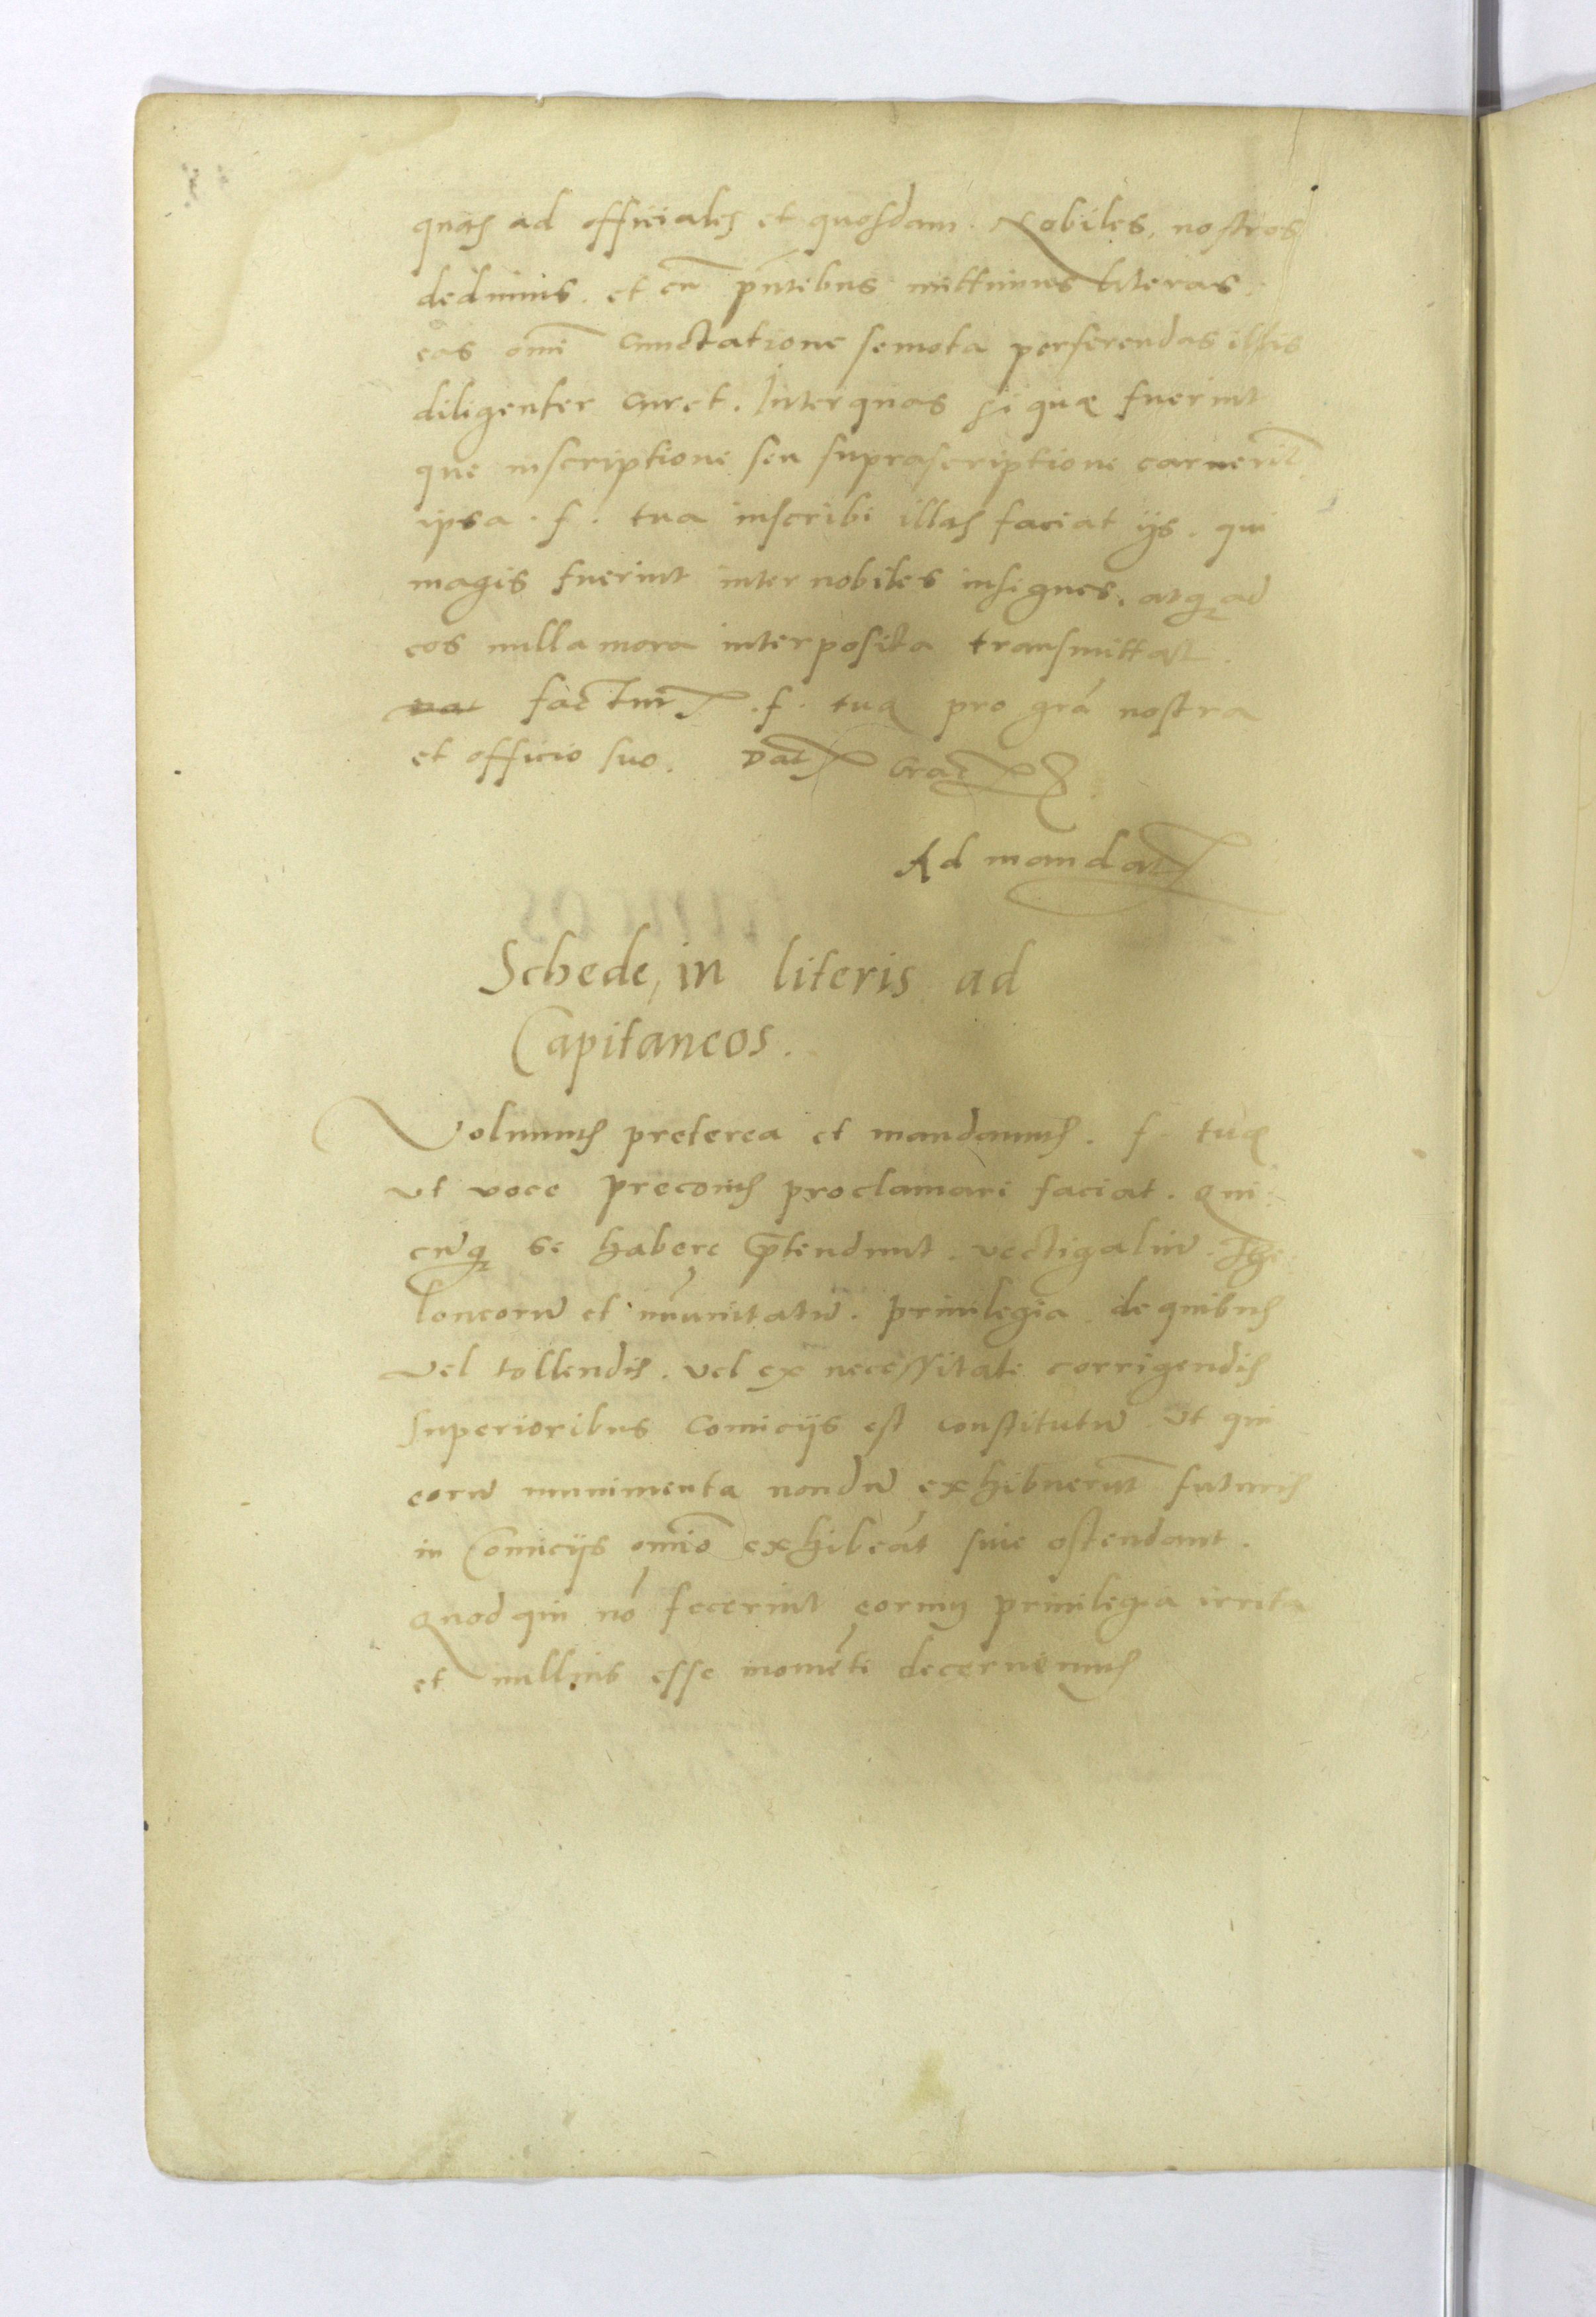 quas ad officiales et quosdam. Nobiles, nostros
dedimus. et cū pn̄tibus mittimus literas.
eas omī cunctatione semota perferendas illas
diligenter curet. Inter quas si quę fuerint
que inscriptione seu suprascriptione caruerīt.
ipsa. f. tua inscribi illas faciat ijs. qui
magis fuerint inter nobiles insignes. atq ad
eos nulla mora interposita transmittat.
factur. f. tuę pro grā nostra
et officio suo. Dat Crac
Ad mandat
Schede, in literis ad
Capitaneos.
Volumus preterea et mandamus. f. tuę
vt voce preconis proclamari faciat. Qui
cūq se habere p̄tendunt. vectigaliū. The
loneorū et īmunitatū. priuilegia. de quibus
vel tollendis. vel ex necessitate corrigendis
superioribus Comicijs est constitutū. Vt qui
eorū munimenta nondū exhibuerūt futuris
in Comicijs omīo exhibeāt siue ostendant.
Quod qui nō fecerint eorum priuilegia irrita
et nullius esse momēti decernemus